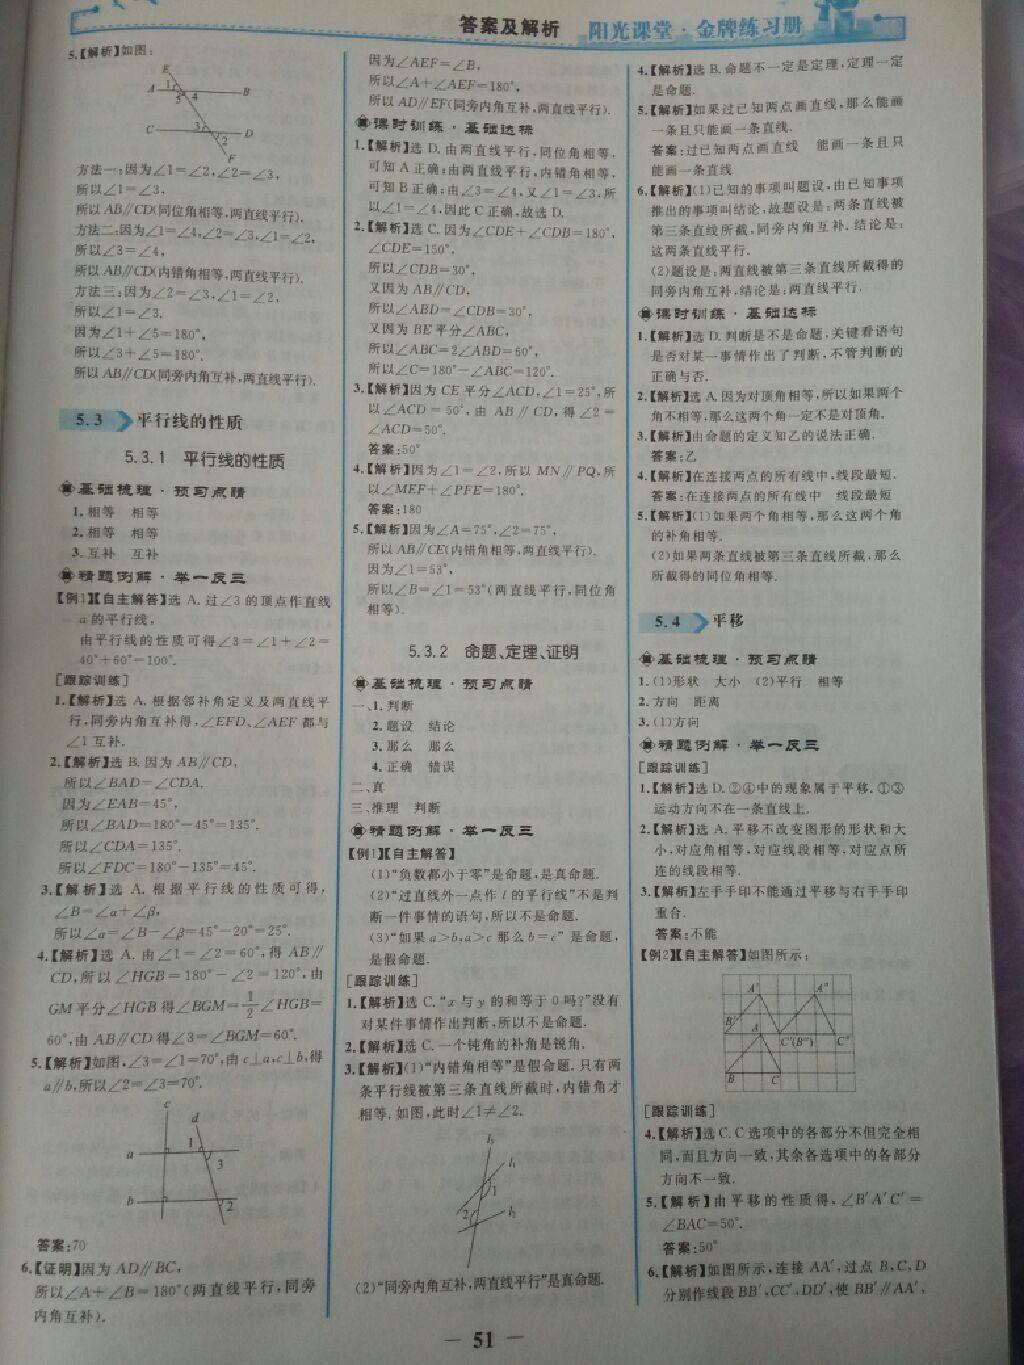 答案及解析
阳光课堂·金牌练习册
5.【解析】如图:
E
A 1 B
5 4
C 3 D
2
F
方法一:因为∠1=∠2,∠2=∠3,
所以∠1=∠3,
所以AB∥CD(同位角相等,两直线平行).
方法二:因为∠1=∠4,∠2=∠3,∠1=∠2,
所以∠3=∠4,
所以AB∥CD(内错角相等,两直线平行).
方法三:因为∠2=∠3,∠1=∠2,
所以∠1=∠3.
因为∠1+∠5=180°,
所以∠3+∠5=180°.
所以AB∥CD(同旁内角互补,两直线平行).
5.3 平行线的性质
5.3.1 平行线的性质
基础梳理·预习点睛
1.相等 相等
2.相等 相等
3.互补 互补
精题例解·举一反三
【例1】【自主解答】选A.过∠3的顶点作直线
a的平行线,
由平行线的性质可得∠3=∠1+∠2=
40°+60°=100°.
[跟踪训练]
1.【解析】选A.根据邻补角定义及两直线平
行,同旁内角互补得,∠EFD、∠AEF都与
∠1互补.
2.【解析】选B.因为AB∥CD,
所以∠BAD=∠CDA.
因为∠EAB=45°,
所以∠BAD=180°-45°=135°.
所以∠CDA=135°.
所以∠FDC=180°-135°=45°.
3.【解析】选A.根据平行线的性质可得,
∠B=∠α+∠β,
所以∠α=∠B-∠β=45°-20°=25°.
4.【解析】选A.由∠1=∠2=60°,得AB∥
CD,所以∠HGB=180°-∠2=120°,由
GM平分∠HGB得∠BGM=1/2∠HGB=
60°,由AB∥CD得∠3=∠BGM=60°.
5.【解析】如图,∠3=∠1=70°,由c⊥a,c⊥b,得
a∥b,所以∠2=∠3=70°.
c
d
a 1
3
b 2
答案:70
6.【证明】因为AD∥BC,
所以∠A+∠B=180°(两直线平行,同旁
内角互补).
因为∠AEF=∠B,
所以∠A+∠AEF=180°,
所以AD∥EF(同旁内角互补,两直线平行).
课时训练·基础达标
1.【解析】选D.由两直线平行,同位角相等,
可知A正确;由两直线平行,内错角相等,
可知B正确;由∠3=∠4,又∠1=∠3,所
以∠1=∠4,因此C正确,故选D.
2.【解析】选C.因为∠CDE+∠CDB=180°,
∠CDE=150°,
所以∠CDB=30°,
又因为AB∥CD,
所以∠ABD=∠CDB=30°,
又因为BE平分∠ABC,
所以∠ABC=2∠ABD=60°,
所以∠C=180°-∠ABC=120°.
3.【解析】因为CE平分∠ACD,∠1=25°,所
以∠ACD=50°,由AB∥CD,得∠2=
∠ACD=50°.
答案:50°
4.【解析】因为∠1=∠2,所以MN∥PQ,所
以∠MEF+∠PFE=180°.
答案:180
5.【解析】因为∠A=75°,∠2=75°,
所以AB∥CE(内错角相等,两直线平行).
因为∠1=53°,
所以∠B=∠1=53°(两直线平行,同位角
相等).
5.3.2 命题、定理、证明
基础梳理·预习点睛
一、1.判断
2.题设 结论
3.那么 那么
4.正确 错误
二、真
三、推理 判断
精题例解·举一反三
【例1】【自主解答】
(1)“负数都小于零”是命题,是真命题.
(2)“过直线外一点作l的平行线”不是判
断一件事情的语句,所以不是命题.
(3)“如果a>b,a>c那么b=c”是命题,
是假命题.
[跟踪训练]
1.【解析】选C.“x与y的和等于0吗?”没有
对某件事情作出判断,所以不是命题.
2.【解析】选C.一个钝角的补角是锐角.
3.【解析】(1)“内错角相等”是假命题.只有两
条平行线被第三条直线所截时,内错角才
相等.如图,此时∠1≠∠2.
l₃
l₁
1
2 l₂
(2)“同旁内角互补,两直线平行”是真命题.
4.【解析】选B.命题不一定是定理,定理一定
是命题.
5.【解析】如果过已知两点画直线,那么能画
一条且只能画一条直线.
答案:过已知两点画直线 能画一条且只
能画一条直线
6.【解析】(1)已知的事项叫题设,由已知事项
推出的事项叫结论,故题设是:两条直线被
第三条直线所截,同旁内角互补.结论是:
这两条直线平行.
(2)题设是:两直线被第三条直线所截得的
同旁内角互补,结论是:两直线平行.
课时训练·基础达标
1.【解析】选D.判断是不是命题,关键看语句
是否对某一事情作出了判断,不管判断的
正确与否.
2.【解析】选A.因为对顶角相等,所以如果两个
角不相等,那么这两个角一定不是对顶角.
3.【解析】由命题的定义知乙的说法正确.
答案:乙
4.【解析】在连接两点的所有线中,线段最短.
答案:在连接两点的所有线中 线段最短
5.【解析】(1)如果两个角相等,那么这两个角
的补角相等.
(2)如果两条直线被第三条直线所截,那么
所截得的同位角相等.
5.4 平移
基础梳理·预习点睛
1.(1)形状 大小 (2)平行 相等
2.方向 距离
3.(1)方向
精题例解·举一反三
[跟踪训练]
1.【解析】选D.②④中的现象属于平移.①③
运动方向不在一条直线上.
2.【解析】选A.平移不改变图形的形状和大
小,对应角相等,对应线段相等,对应点所
连的线段相等.
3.【解析】左手手印不能通过平移与右手手印
重合.
答案:不能
【例2】【自主解答】如图所示:
A′ A″
B′ A C′(B″) C″
B C
[跟踪训练]
4.【解析】选C.C选项中的各部分不但完全相
同,而且方向一致,其余各选项中的各部分
方向不一致.
5.【解析】由平移的性质得,∠B′A′C′=
∠BAC=50°.
答案:50°
6.【解析】如图所示,连接AA′,过点B,C,D
分别作线段BB′,CC′,DD′,使BB′∥AA′,
— 51 —